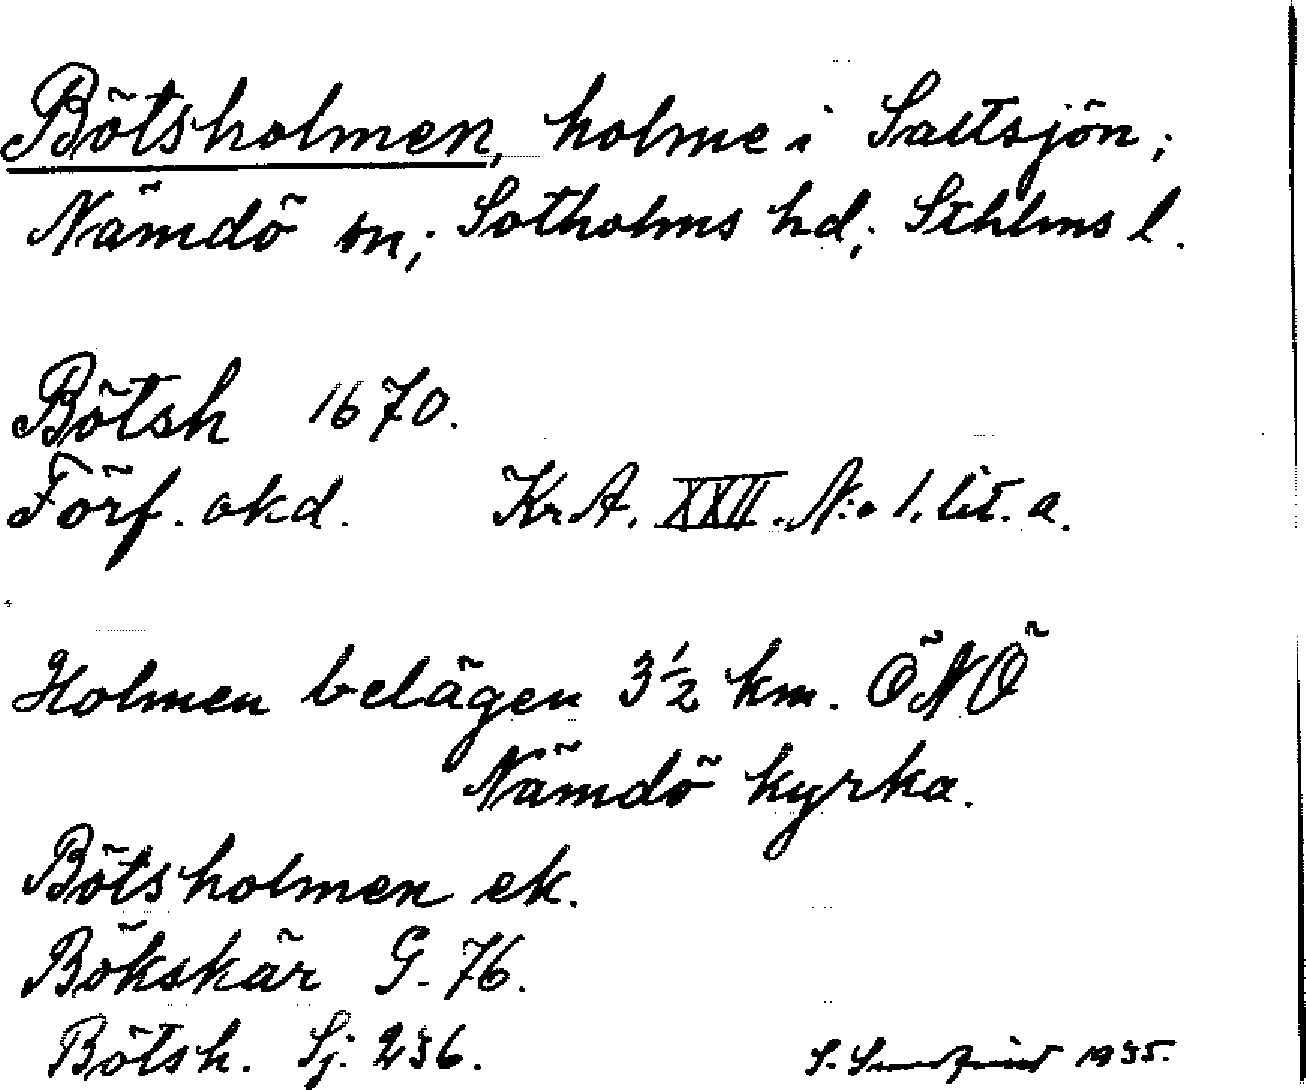 Bötsholmen, holme i Saltsjön;
Nämdö sn; Sotholms hd; Sthlms l.
Bötsh 1670.
Förf. okd. Kr A. XXII. N:o 1. lit. a.
Holmen belägen 3½ km. ÖNÖ
Nämdö kyrka.
Bötsholmen ek.
Bökskär G. 76.
Bötsh. Sj: 236.
S. 1935.